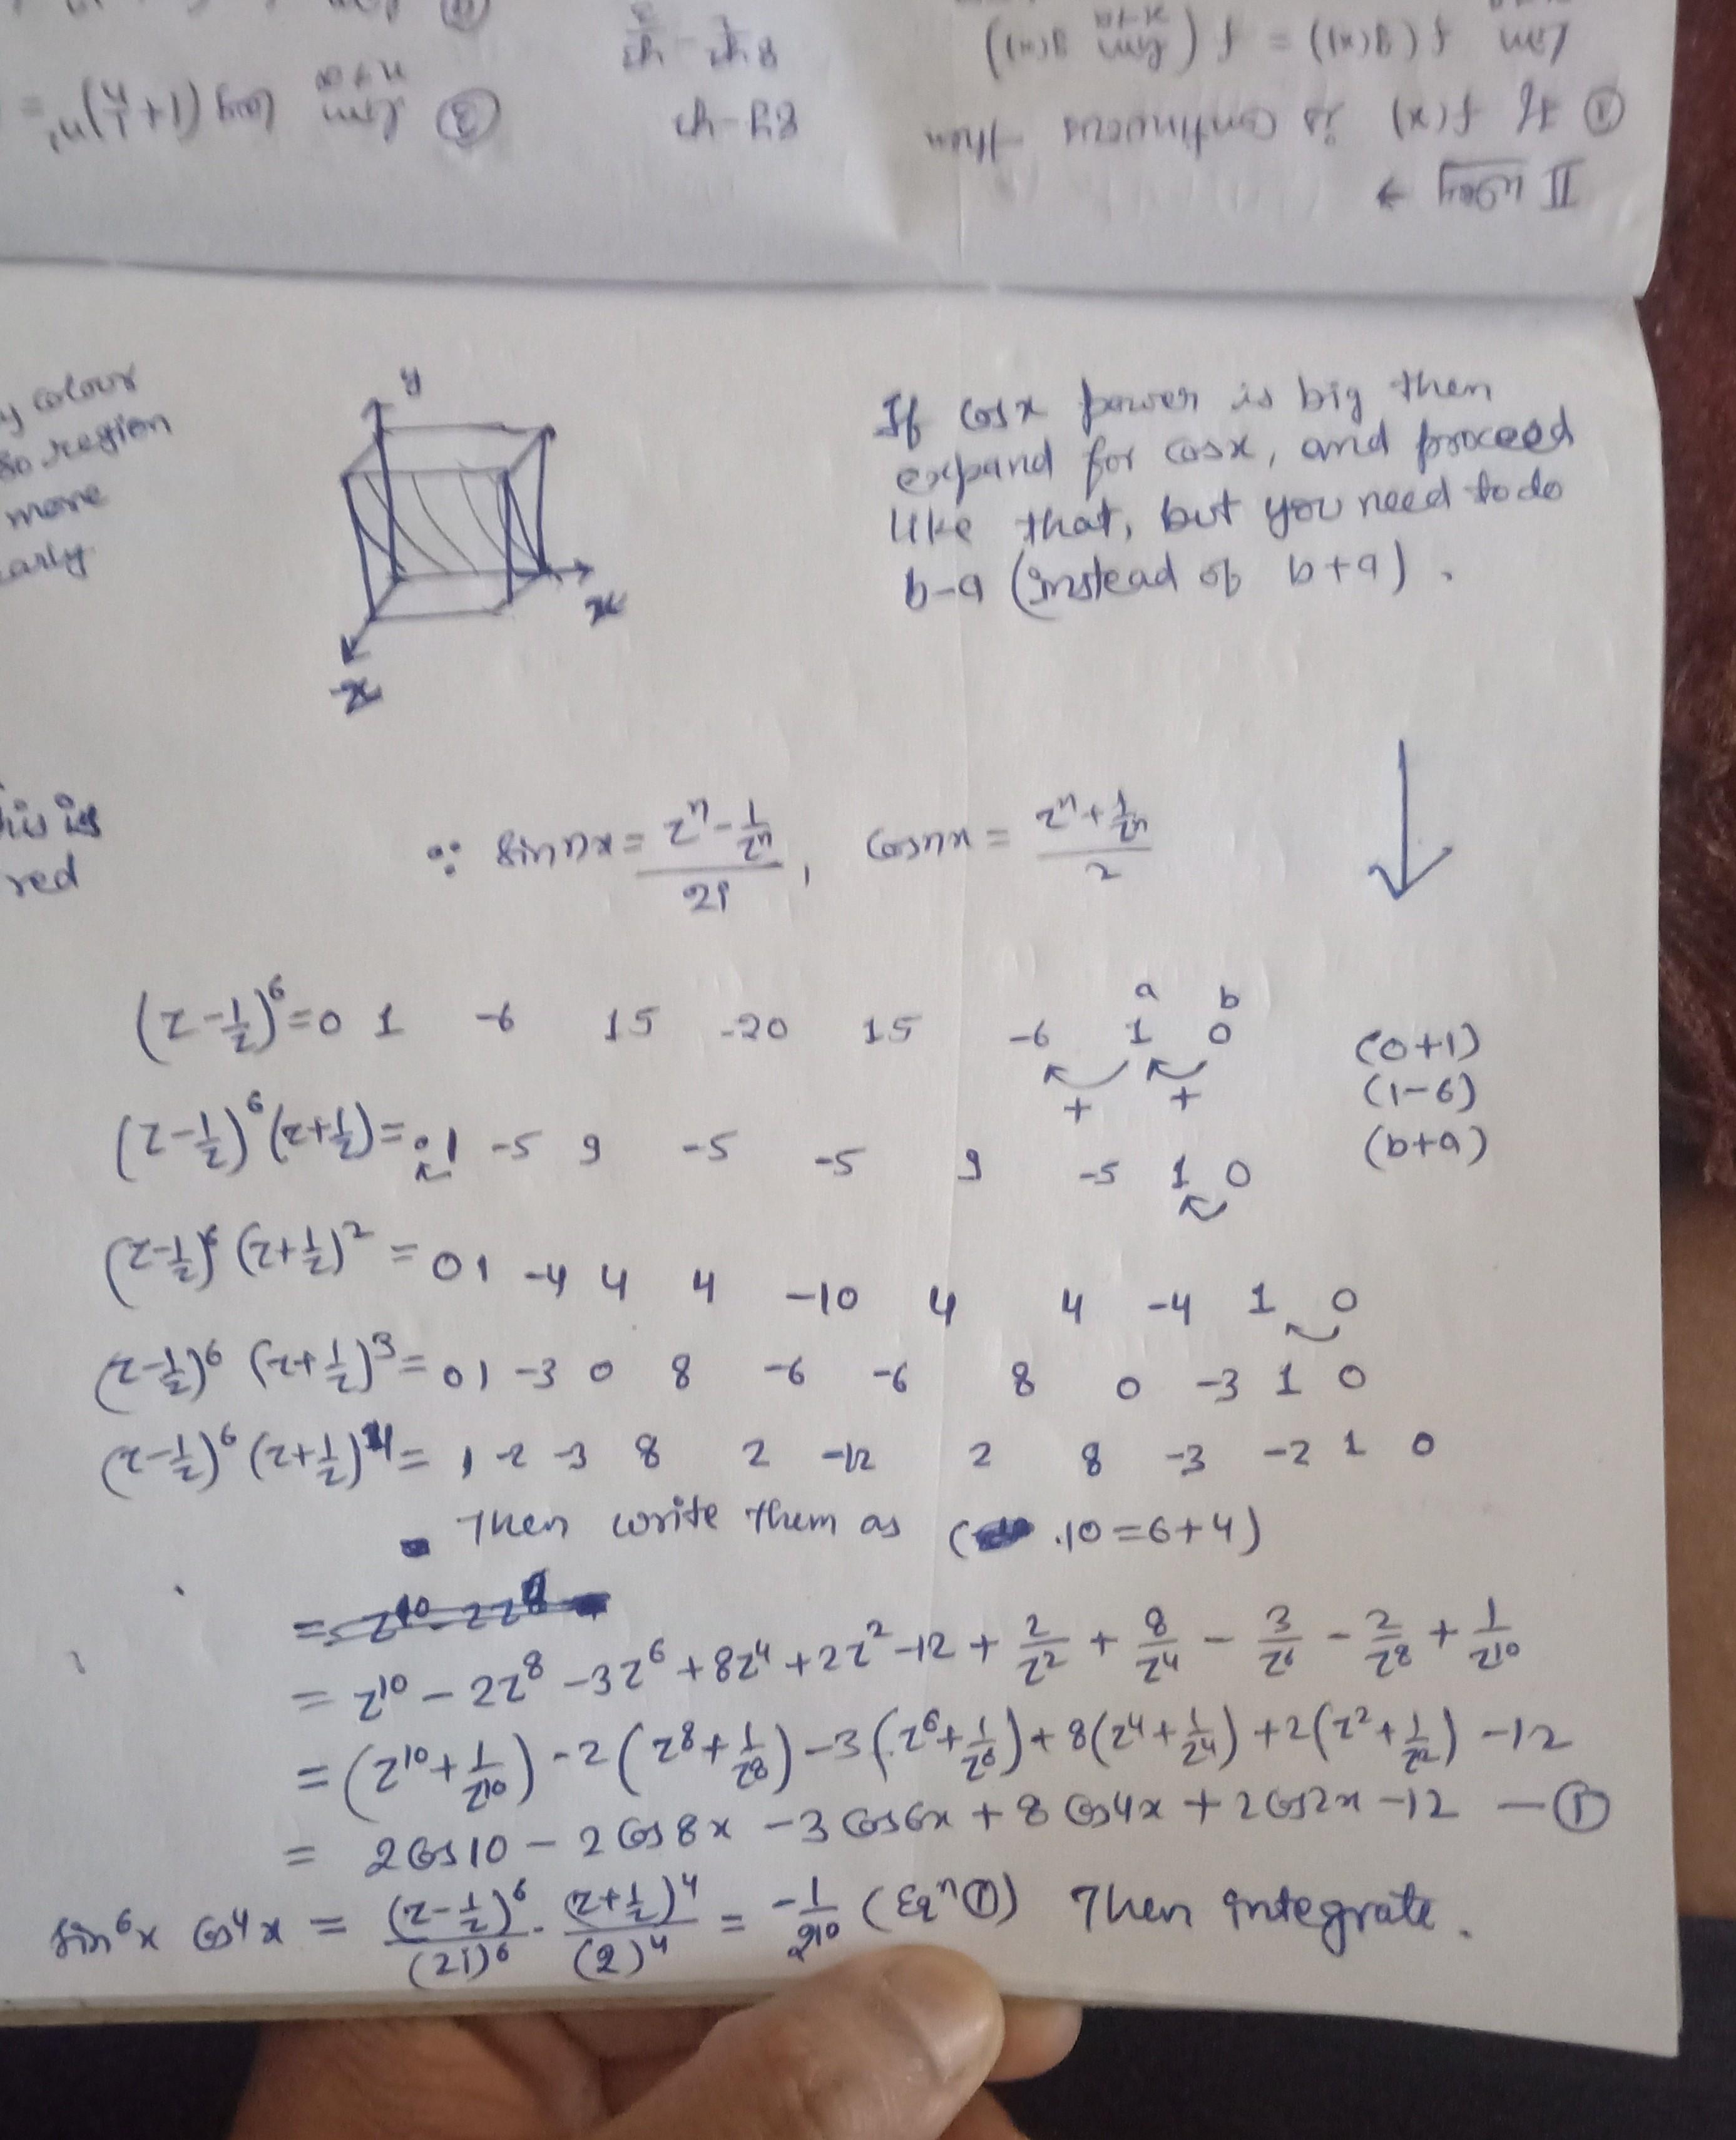 II way →
① If f(x) is continuous then
lim f(g(x)) = f(lim g(x))
x→a
8y-y²
② lim log(1+1/n)ⁿ =
n→∞
y colour
so region
more
early
y
x
-x
If cosx power is big then
expand for cosx, and proceed
like that, but you need to do
b-a (instead of b+a).
This is
red
∵ sin nx = (zⁿ - 1/zⁿ)/2i , cos nx = (zⁿ + 1/zⁿ)/2
a b
(z-1/z)⁶ = 0 1 -6 15 -20 15 -6 1 0 (0+1)
+ + (1-6)
(z-1/z)⁶(z+1/z) = 0 1 -5 9 -5 -5 9 -5 1 0 (b+a)
(z-1/z)⁶ (z+1/z)² = 0 1 -4 4 4 -10 4 4 -4 1 0
(z-1/z)⁶ (z+1/z)³ = 0 1 -3 0 8 -6 -6 8 0 -3 1 0
(z-1/z)⁶ (z+1/z)⁴ = 1 -2 -3 8 2 -12 2 8 -3 -2 1 0
Then write them as ( 10 = 6+4)
= z¹⁰ - 2z⁸ - 3z⁶ + 8z⁴ + 2z² - 12 + 2/z² + 8/z⁴ - 3/z⁶ - 2/z⁸ + 1/z¹⁰
= (z¹⁰ + 1/z¹⁰) - 2(z⁸ + 1/z⁸) - 3(z⁶ + 1/z⁶) + 8(z⁴ + 1/z⁴) + 2(z² + 1/z²) - 12
= 2cos10 - 2cos8x - 3cos6x + 8cos4x + 2cos2x - 12 — ①
sin⁶x cos⁴x = (z-1/z)⁶/(2i)⁶ · (z+1/z)⁴/(2)⁴ = -1/2¹⁰ (Eqⁿ ①) Then integrate.